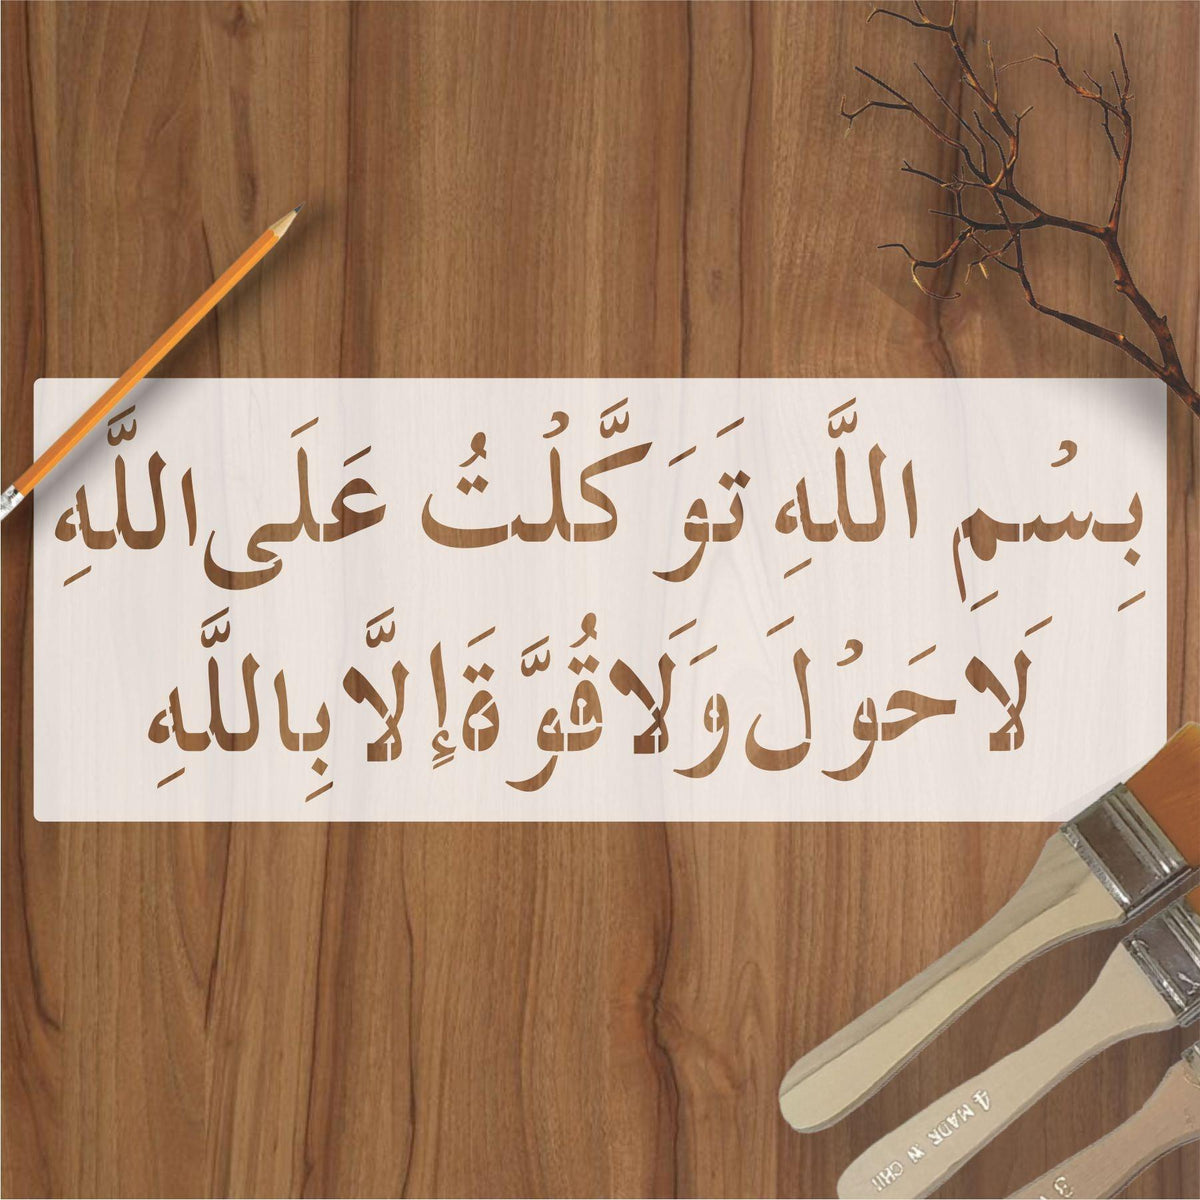 بِسْمِ اللَّهِ تَوَ كَّلْتُ عَلَى اللَّهِ
لَا حَوْ لَ وَلَا قُوَّ ةَ إِلَّا بِاللَّهِ
4 MADE IN CHI
3